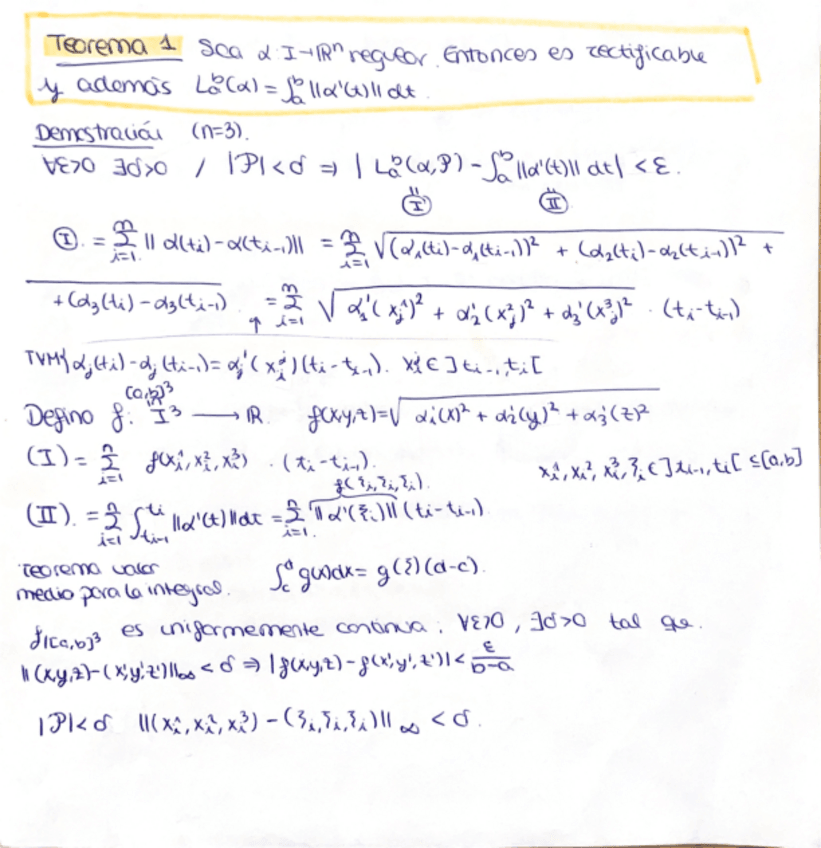 Teorema 1 Sea α: I→ℝⁿ regular. Entonces es rectificable
y además Lₐᵇ(α) = ∫ₐᵇ ||α'(t)|| dt.
Demostración (n=3).
∀ε>0 ∃δ>0 / |P|<δ ⇒ | Lₐᵇ(α,P) - ∫ₐᵇ ||α'(t)|| dt| < ε.
" Ⓘ " Ⓘ Ⓘ
Ⓘ. = ∑ᵢ₌₁ⁿ || α(tᵢ)-α(tᵢ₋₁)|| = ∑ᵢ₌₁ⁿ √(α₁(tᵢ)-α₁(tᵢ₋₁))² + (α₂(tᵢ)-α₂(tᵢ₋₁))² +
+(α₃(tᵢ)-α₃(tᵢ₋₁) = ∑ᵢ₌₁ⁿ √ α₁'(xⱼ¹)² + α₂'(xⱼ²)² + α₃'(xⱼ³)² · (tᵢ-tᵢ₋₁)
↑
TVM{ αⱼ(tᵢ)-αⱼ(tᵢ₋₁)= αⱼ'(xᵢʲ)(tᵢ-tᵢ₋₁). xᵢʲ ∈ ]tᵢ₋₁,tᵢ[
[a,b]³
Defino f: I³ → ℝ. f(x,y,z)=√ α₁'(x)² + α₂'(y)² + α₃'(z)²
(I) = ∑ᵢ₌₁ⁿ f(xᵢ¹,xᵢ²,xᵢ³) · (tᵢ-tᵢ₋₁). xᵢ¹,xᵢ²,xᵢ³,ξᵢ ∈ ]tᵢ₋₁,tᵢ[ ⊆[a,b]
f(ξᵢ,ξᵢ,ξᵢ).
(II). = ∑ᵢ₌₁ⁿ ∫ₜᵢ₋₁ᵗⁱ ||α'(t)||dt = ∑ᵢ₌₁ⁿ ||α'(ξᵢ)|| (tᵢ-tᵢ₋₁)
Teorema valor
medio para la integral. ∫_c^d g(x)dx = g(ξ)(d-c).
f|[a,b]³ es uniformemente continua. ∀ε>0, ∃δ>0 tal que.
||(x,y,z)-(x',y',z')||∞ < δ ⇒ |f(x,y,z)-f(x',y',z')| < ε/(b-a)
|P|<δ ||(xᵢ¹,xᵢ²,xᵢ³) - (ξᵢ,ξᵢ,ξᵢ)||∞ < δ.